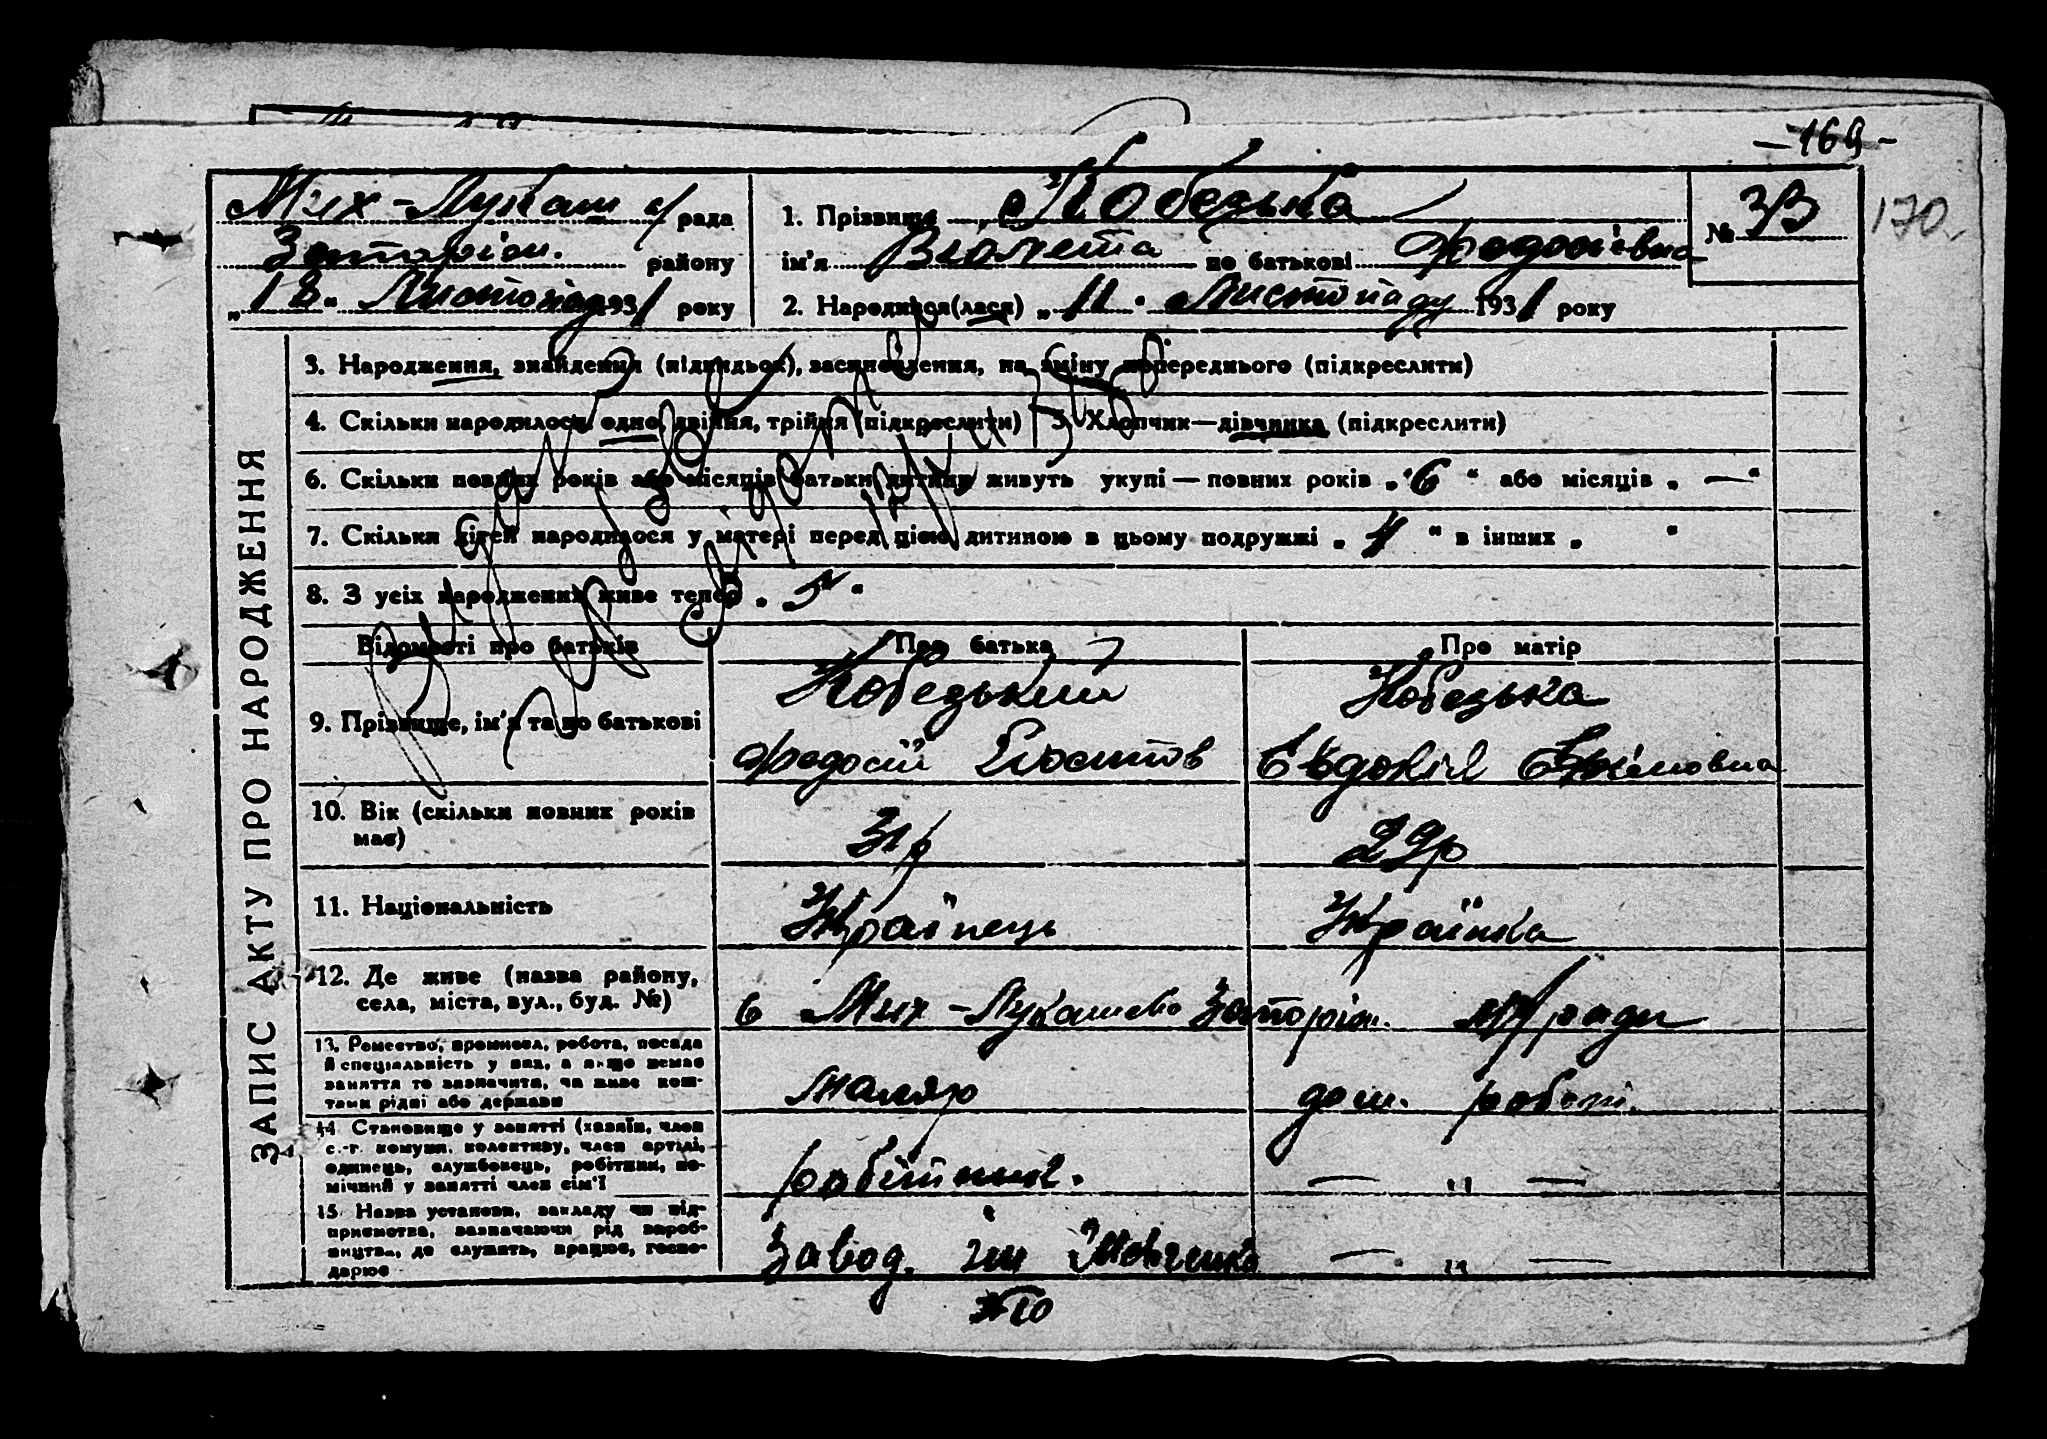 – 169 –
170
Мих-Лукаш с/рада
Запоріж. району
„18“ Листопаду 1931 року
1. Прізвище Кобезька
ім'я Віолета по батькові Федосіевна
№ 33
2. Народився(лася) „11“ Листопаду 1931 року
ЗАПИС АКТУ ПРО НАРОДЖЕННЯ
3. Народження, знайдення (підкидьок), засиновлення, на зміну попереднього (підкреслити)
4. Скільки народилося одно, двійня, трійня (підкреслити) 5. Хлопчик—дівчинка (підкреслити)
6. Скільки повних років або місяців батьки дитини живуть укупі — повних років „6“ або місяців „—“
7. Скільки дітей народилося у матері перед цією дитиною в цьому подружжі „4“ в інших „ “
8. З усіх народжених живе тепер „5“
Відомості про батьків Про батька Про матір
9. Прізвище, ім'я та по батькові
Кобезький Кобезька
Федосій Евдокія
10. Вік (скільки повних років має)
31р 29р
11. Національність
Українець Українка
12. Де живе (назва району, села, міста, вул., буд. №)
с Мих-Лукашево Запоріж. М/ради
13. Ремество, промисел, робота, посада й спеціяльність у них, а якщо немає заняття то зазначити, чи живе коштами рідні або держави
маляр дом. робот.
14 Становище у занятті (хазяїн, член с.-г. комуни, колективу, член артілі, одинець, службовець, робітник, помічний у занятті член сім'ї
робітник. — " —
15 Назва установи, закладу чи підприємства, зазначаючи рід виробництва, де служить, працює, господарює
Завод. ім Шевченка — " —